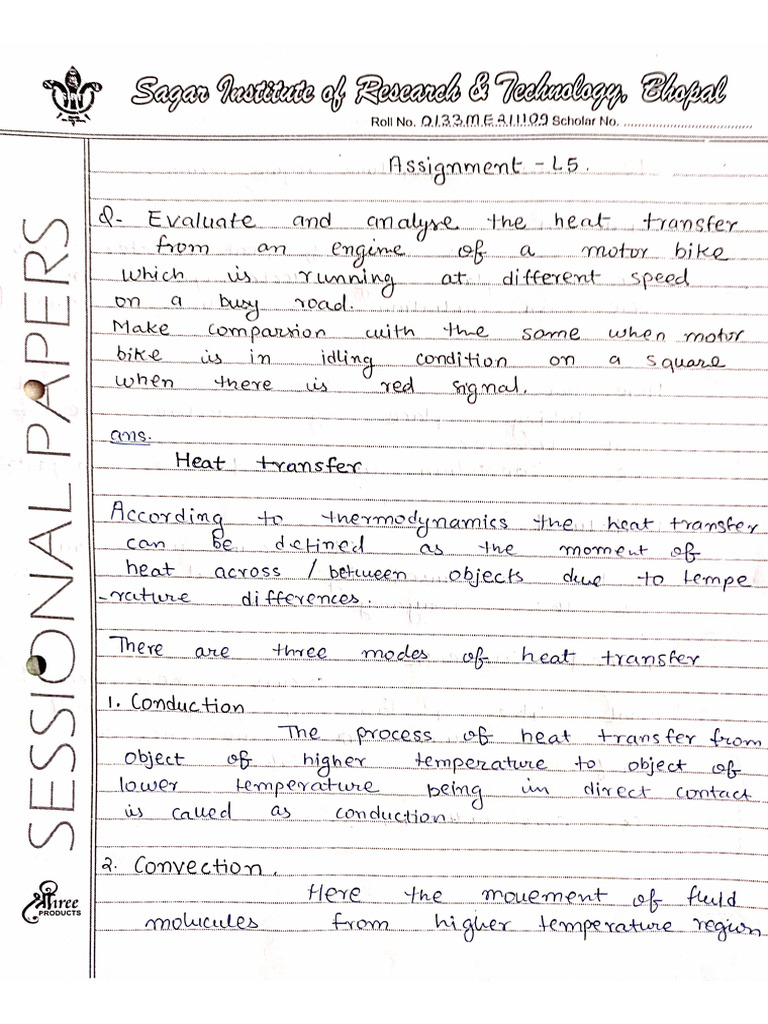 Sagar Institute of Research & Technology, Bhopal
Roll No. 0133ME211109 Scholar No. ....................................
Assignment - L5.
Q- Evaluate and analyse the heat transfer
from an engine of a motor bike
which is running at different speed
on a busy road.
Make comparsion with the same when motor
bike is in idling condition on a square
when there is red signal.
ans.
Heat transfer
According to thermodynamics the heat transfer
can be defined as the moment of
heat across / between objects due to tempe
-rature differences.
There are three modes of heat transfer
1. Conduction
The process of heat transfer from
object of higher temperature to object of
lower temperature being in direct contact
is called as conduction.
2. Convection.
Here the movement of fluid
molucules from higher temperature region
SESSIONAL PAPERS
श्रीhree
PRODUCTS